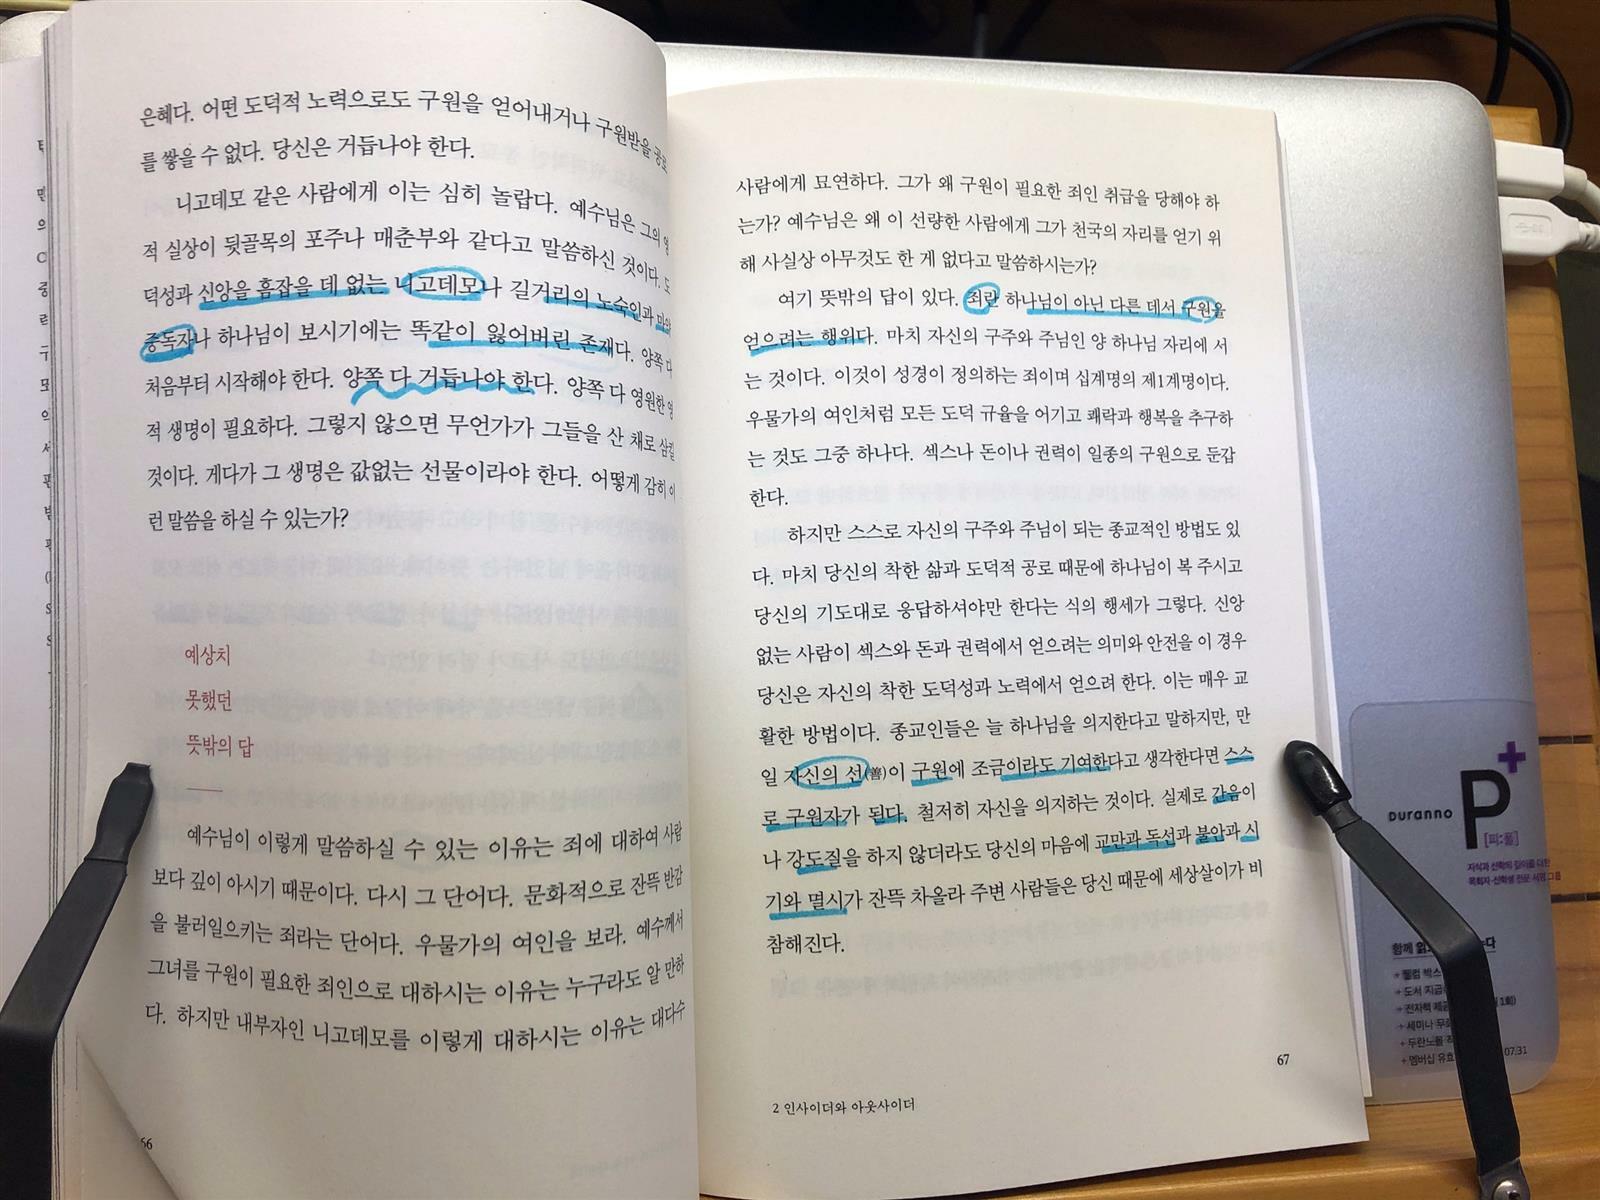 은혜다. 어떤 도덕적 노력으로도 구원을 얻어내거나 구원받을 공로
를 쌓을 수 없다. 당신은 거듭나야 한다.
니고데모 같은 사람에게 이는 심히 놀랍다. 예수님은 그의 영
적 실상이 뒷골목의 포주나 매춘부와 같다고 말씀하신 것이다. 도
덕성과 신앙을 흠잡을 데 없는 니고데모나 길거리의 노숙인과 마약
중독자나 하나님이 보시기에는 똑같이 잃어버린 존재다. 양쪽 다
처음부터 시작해야 한다. 양쪽 다 거듭나야 한다. 양쪽 다 영원한 영
적 생명이 필요하다. 그렇지 않으면 무언가가 그들을 산 채로 삼킬
것이다. 게다가 그 생명은 값없는 선물이라야 한다. 어떻게 감히 이
런 말씀을 하실 수 있는가?
예상치
못했던
뜻밖의 답
예수님이 이렇게 말씀하실 수 있는 이유는 죄에 대하여 사람
보다 깊이 아시기 때문이다. 다시 그 단어다. 문화적으로 잔뜩 반감
을 불러일으키는 죄라는 단어다. 우물가의 여인을 보라. 예수께서
그녀를 구원이 필요한 죄인으로 대하시는 이유는 누구라도 알 만하
다. 하지만 내부자인 니고데모를 이렇게 대하시는 이유는 대다수
66
사람에게 묘연하다. 그가 왜 구원이 필요한 죄인 취급을 당해야 하
는가? 예수님은 왜 이 선량한 사람에게 그가 천국의 자리를 얻기 위
해 사실상 아무것도 한 게 없다고 말씀하시는가?
여기 뜻밖의 답이 있다. 죄란 하나님이 아닌 다른 데서 구원을
얻으려는 행위다. 마치 자신의 구주와 주님인 양 하나님 자리에 서
는 것이다. 이것이 성경이 정의하는 죄이며 십계명의 제1계명이다.
우물가의 여인처럼 모든 도덕 규율을 어기고 쾌락과 행복을 추구하
는 것도 그중 하나다. 섹스나 돈이나 권력이 일종의 구원으로 둔갑
한다.
하지만 스스로 자신의 구주와 주님이 되는 종교적인 방법도 있
다. 마치 당신의 착한 삶과 도덕적 공로 때문에 하나님이 복 주시고
당신의 기도대로 응답하셔야만 한다는 식의 행세가 그렇다. 신앙
없는 사람이 섹스와 돈과 권력에서 얻으려는 의미와 안전을 이 경우
당신은 자신의 착한 도덕성과 노력에서 얻으려 한다. 이는 매우 교
활한 방법이다. 종교인들은 늘 하나님을 의지한다고 말하지만, 만
일 자신의 선(善)이 구원에 조금이라도 기여한다고 생각한다면 스스
로 구원자가 된다. 철저히 자신을 의지하는 것이다. 실제로 간음이
나 강도질을 하지 않더라도 당신의 마음에 교만과 독선과 불안과 시
기와 멸시가 잔뜩 차올라 주변 사람들은 당신 때문에 세상살이가 비
참해진다.
67
2 인사이더와 아웃사이더
Duranno P+
[피:플]
지식과 신학의 깊이를 더한
목회자·신학생 전문 서평 그룹
함께 읽
+ 웰컴 박스
+ 도서 지급
+ 전자책 제공 1회)
+ 세미나 무료
+ 두란노몰
+ 멤버십 유효 07.31